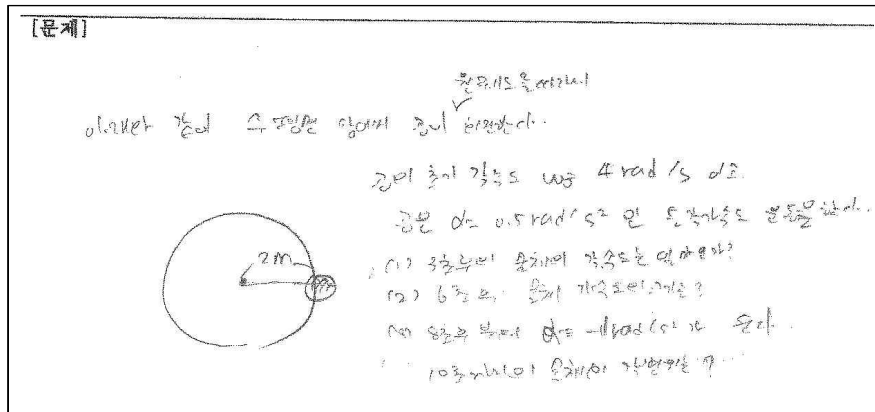 [문제]
원궤도를 따라서
아래와 같이 수평면 상에서 공이 회전한다.
공의 초기 각속도 ω₀ 4 rad/s 이고
공은 α= 0.5 rad/s² 인 등각가속도 운동을 한다.
2m
(1) 3초후의 물체의 각속도는 얼마인가?
(2) 6초 후 물체 가속도의 크기는?
(3) 8초후 부터 α= -1 rad/s² 가 된다.
10초 까지의 물체의 각변위는?